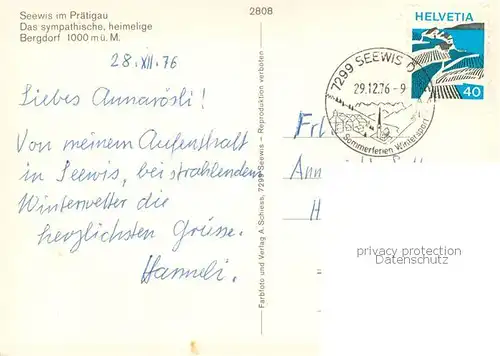 Seewis im Prätigau
Das sympathische, heimelige
Bergdorf 1000 m ü. M.
2808
28. XII. 76
Liebes Annarösli!
Von meinem Aufenthalt
in Seewis, bei strahlendem
Winterwetter die
herzlichsten Grüsse.
Hanneli.
Farbfoto und Verlag A. Schiess, 7299 Seewis — Reproduktion verboten
HELVETIA
40
7299 SEEWIS
29.12.76-9
Sommerferien Wintersport
Ann
H
privacy protection
Datenschutz